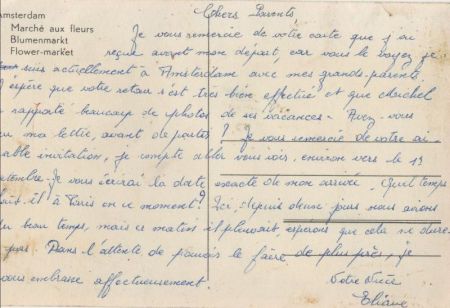 msterdam
Marché aux fleurs
Blumenmarkt
Flower-market
Chers Parents
Je vous remercie de votre carte que j'ai
reçue avant mon départ, car vous le voyez je
suis actuellement à Amsterdam avec mes grands-parents.
J'espère que votre retour s'est très bien effectué et que Michel
a rapporté beaucoup de photos de ses vacances - Avez-vous
eu ma lettre, avant de partir ? Je vous remercie de votre ai-
able invitation, je compte aller vous voir, environ vers le 13
eptembre. Je vous écrirai la date exacte de mon arrivée. Quel temps
fait-il à Paris en ce moment? Ici, depuis deux jours nous avions
du beau temps, mais ce matin il pleuvait, espérons que cela ne dure-
pas. Dans l'attente de pouvoir le faire de plus près, je
vous embrasse affectueusement.
Votre Nièce
Eliane